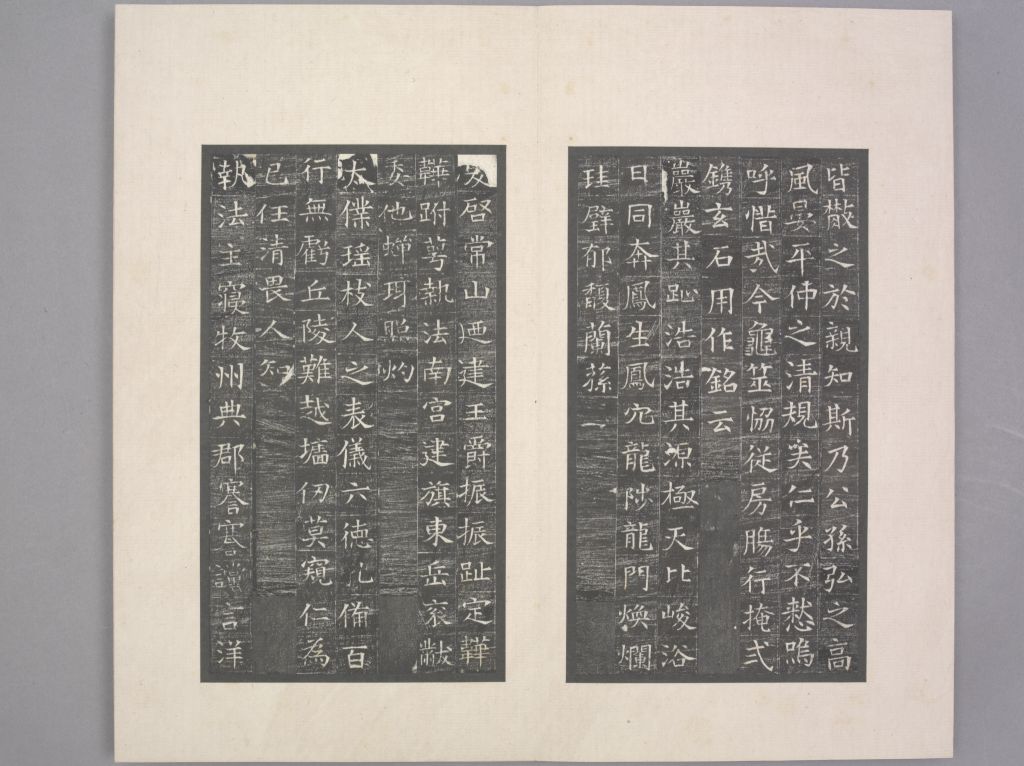 皆散之於親知斯乃公孫弘之高
風晏平仲之清規矣仁乎不憖嗚
呼惜哉今龜筮恊従房腸行掩式
鐫玄石用作銘云
巖巖其趾浩浩其源極天比峻浴
日同奔鳳生鳳穴龍陟龍門煥爛
珪璧郁馥蘭蓀一
爰啓常山迺建王爵振振趾定韡
韡跗萼執法南宮建旗東岳衮黻
委他蟬珥照灼
太僕瑶枝人之表儀六徳孔備百
行無虧丘陵難越墻仞莫窺仁為
已任清畏人知
執法主寢牧州典郡謇謇讜言洋